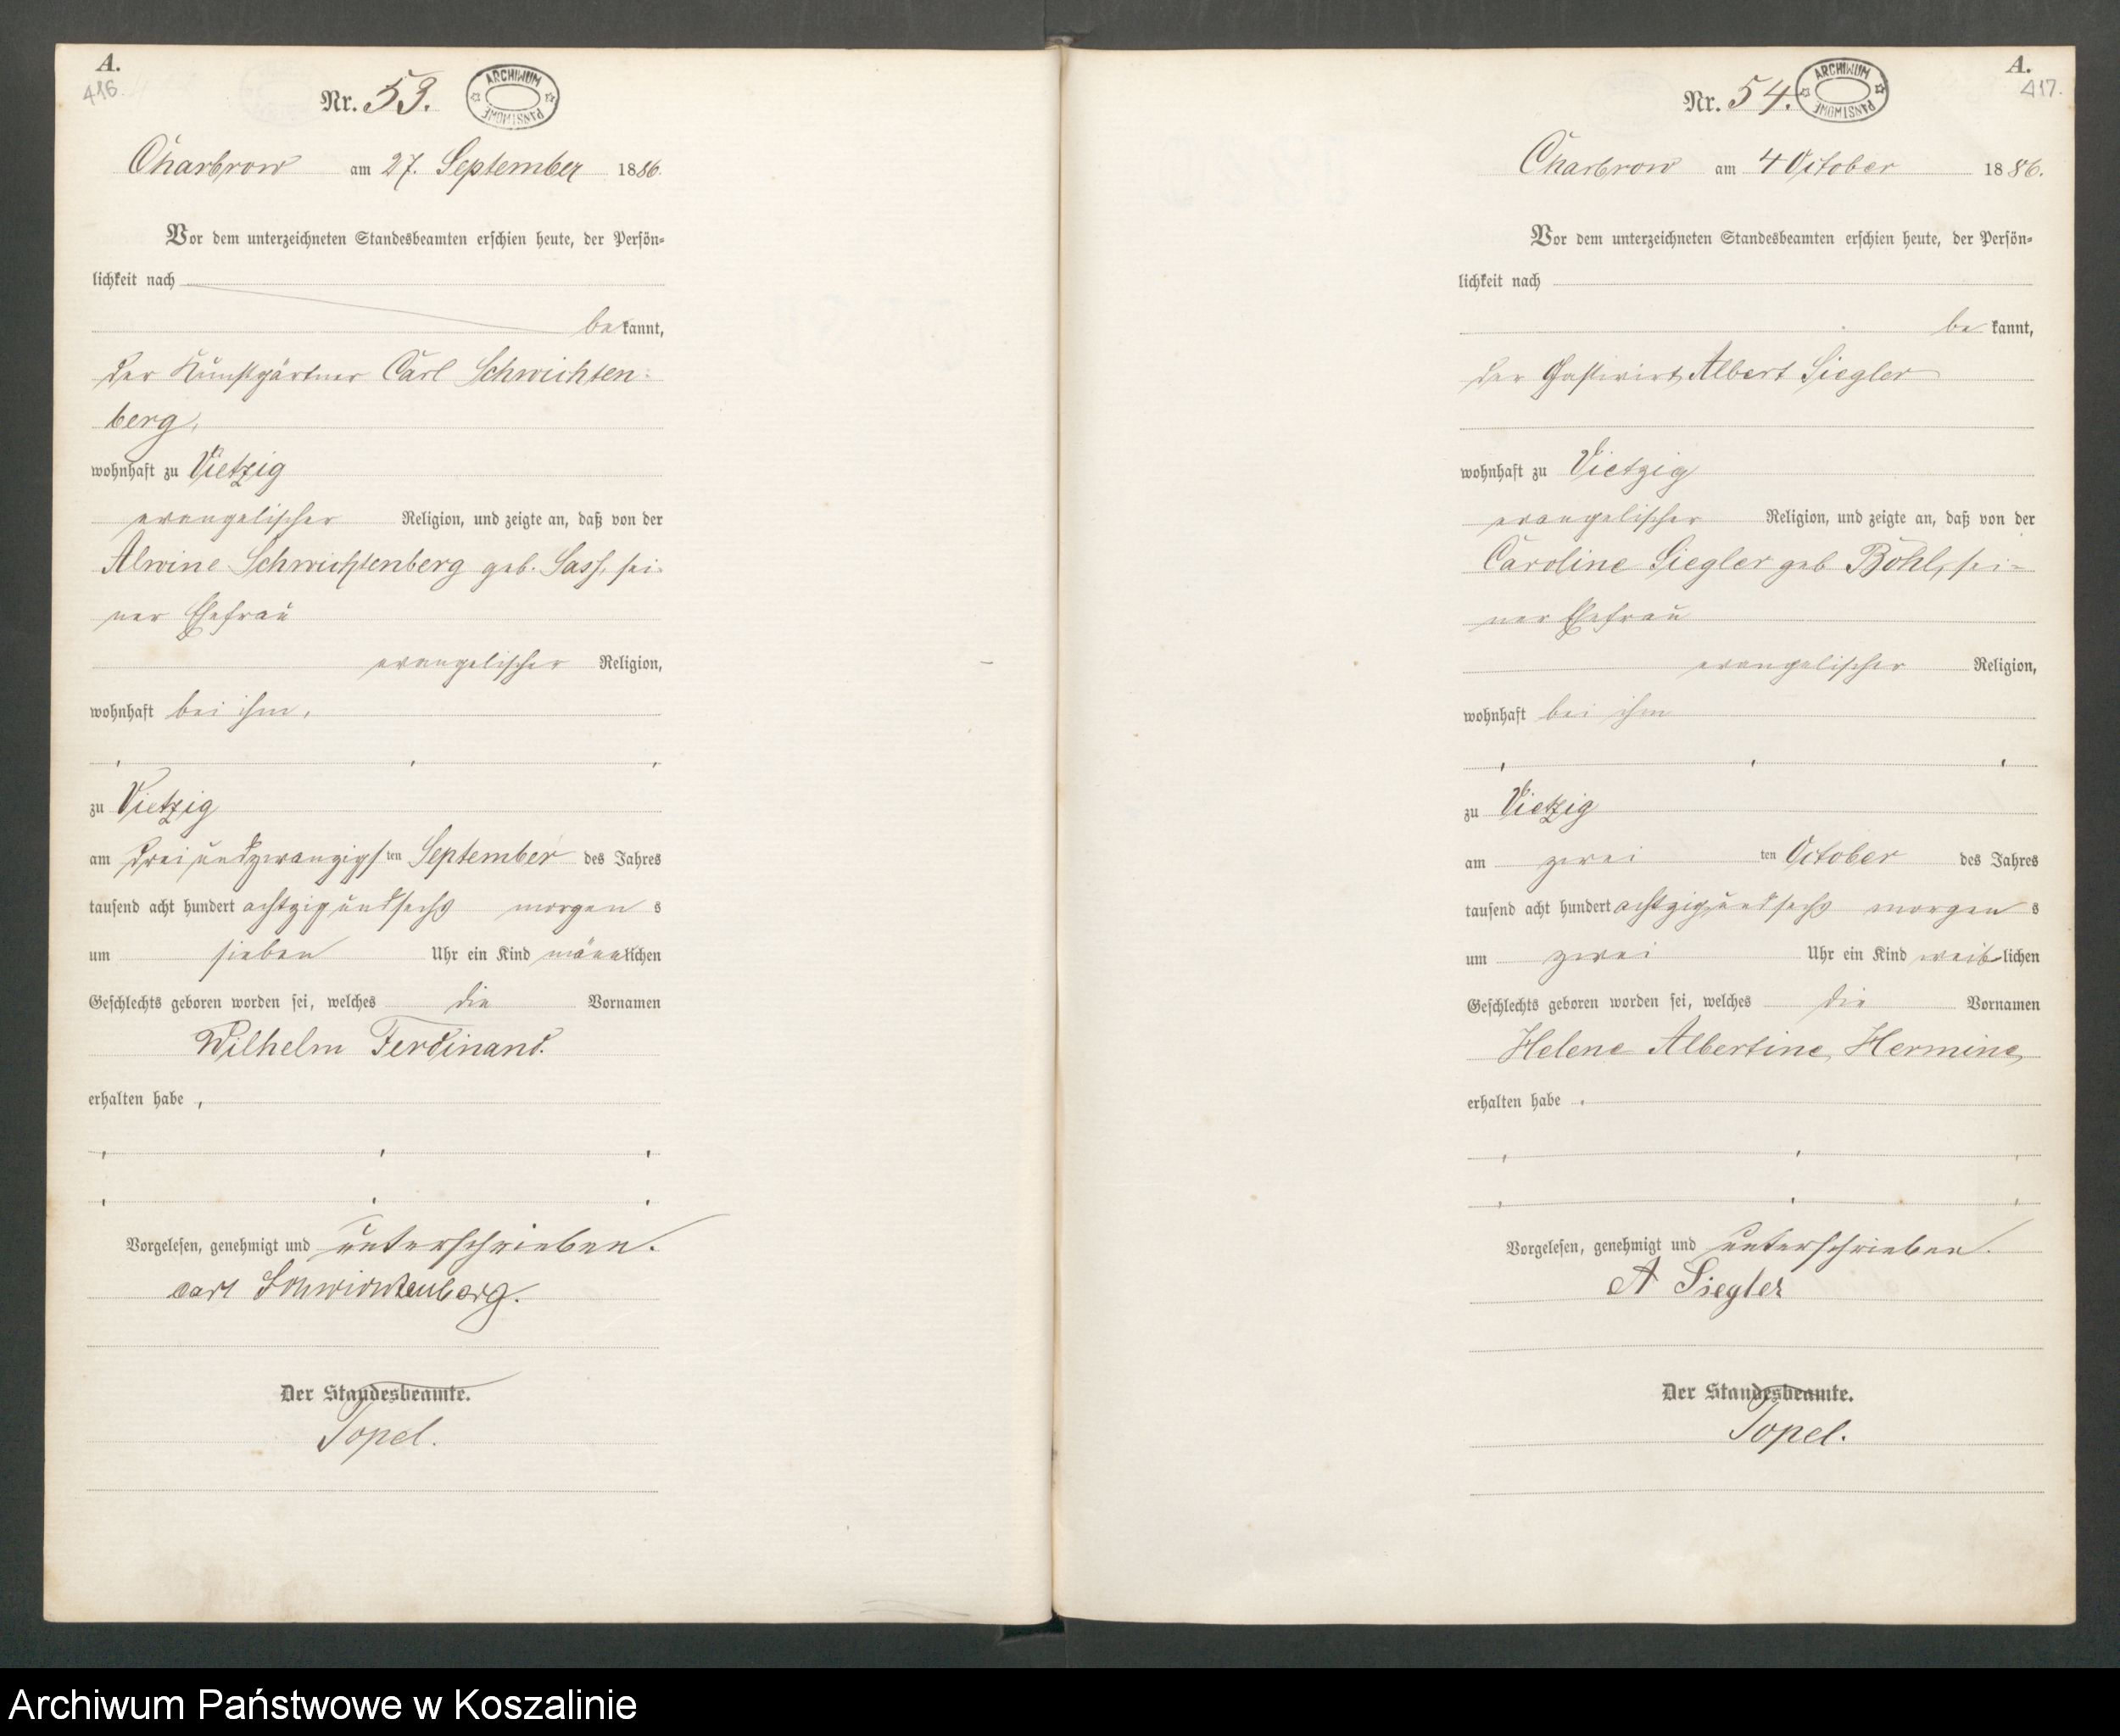 A.
416.
Nr. 53.
ARCHIWUM PAŃSTWOWE
Charbrow am 27. September 1886.
Vor dem unterzeichneten Standesbeamten erschien heute, der Persön-
lichkeit nach
bekannt,
der Kunstgärtner Carl Schwichten-
berg,
wohnhaft zu Vietzig
evangelischer Religion, und zeigte an, daß von der
Alwine Schwichtenberg geb. Sass, sei-
ner Ehefrau
evangelischer Religion,
wohnhaft bei ihm,
zu Vietzig
am dreiundzwanzigsten September des Jahres
tausend acht hundert achtzig und sechs morgens
um sieben Uhr ein Kind männlichen
Geschlechts geboren worden sei, welches die Vornamen
Wilhelm Ferdinand.
erhalten habe,
Vorgelesen, genehmigt und unterschrieben.
Carl Schwichtenberg.
Der Standesbeamte.
Topel.
A.
417.
Nr. 54.
ARCHIWUM PAŃSTWOWE
Charbrow am 4 October 1886.
Vor dem unterzeichneten Standesbeamten erschien heute, der Persön-
lichkeit nach
bekannt,
der Gastwirt Albert Siegler
wohnhaft zu Vietzig
evangelischer Religion, und zeigte an, daß von der
Caroline Siegler geb Böhl, sei-
ner Ehefrau
evangelischer Religion,
wohnhaft bei ihm
zu Vietzig
am zweiten October des Jahres
tausend acht hundert achtzig und sechs morgens
um zwei Uhr ein Kind weiblichen
Geschlechts geboren worden sei, welches die Vornamen
Helene Albertine, Hermine,
erhalten habe.
Vorgelesen, genehmigt und unterschrieben.
A Siegler
Der Standesbeamte.
Topel.
Archiwum Państwowe w Koszalinie